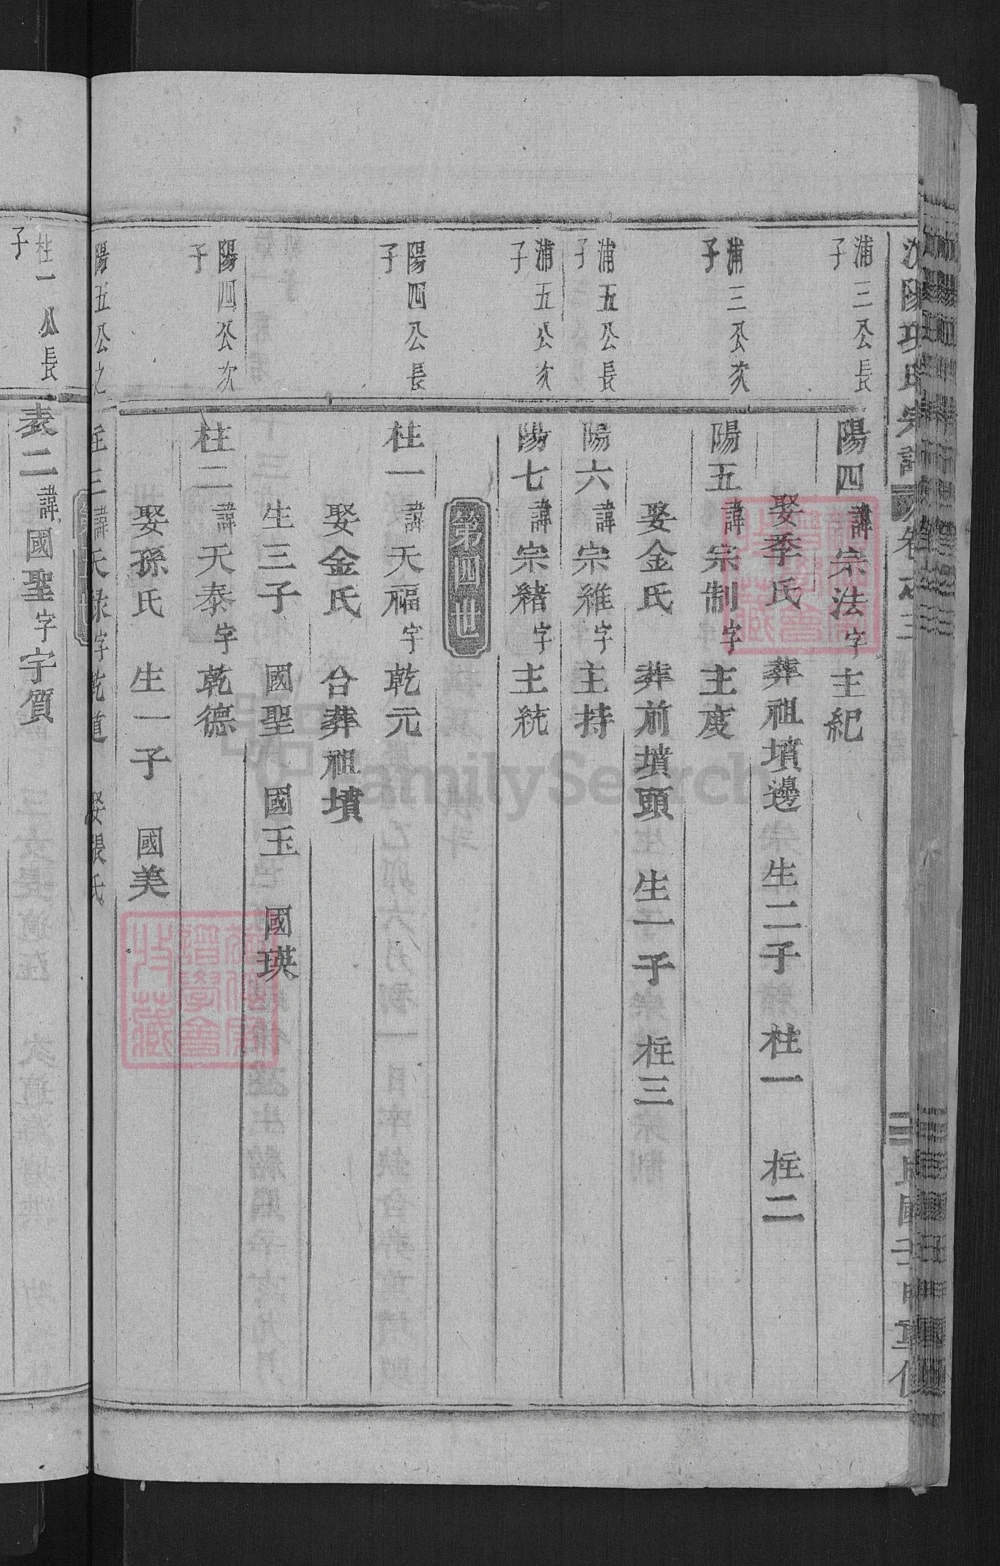 浦三公長子
陽四諱宗法字主紀
娶季氏 葬祖墳邊 生二子 柱一 柱二
浦三公次子
陽五諱宗制字主度
娶金氏 葬前墳頭 生一子 柱三
浦五公長子
陽六諱宗維字主持
浦五公次子
陽七諱宗緒字主統
第四世
陽四公長子
柱一諱天福字乾元
娶金氏 合葬祖墳
生三子 國聖 國玉 國瑛
陽四公次子
柱二諱天泰字乾德
娶孫氏 生一子 國美
陽五公之
柱三諱天祿字乾道 娶張氏
柱一公長子
表二諱國聖字宇質
FamilySearch